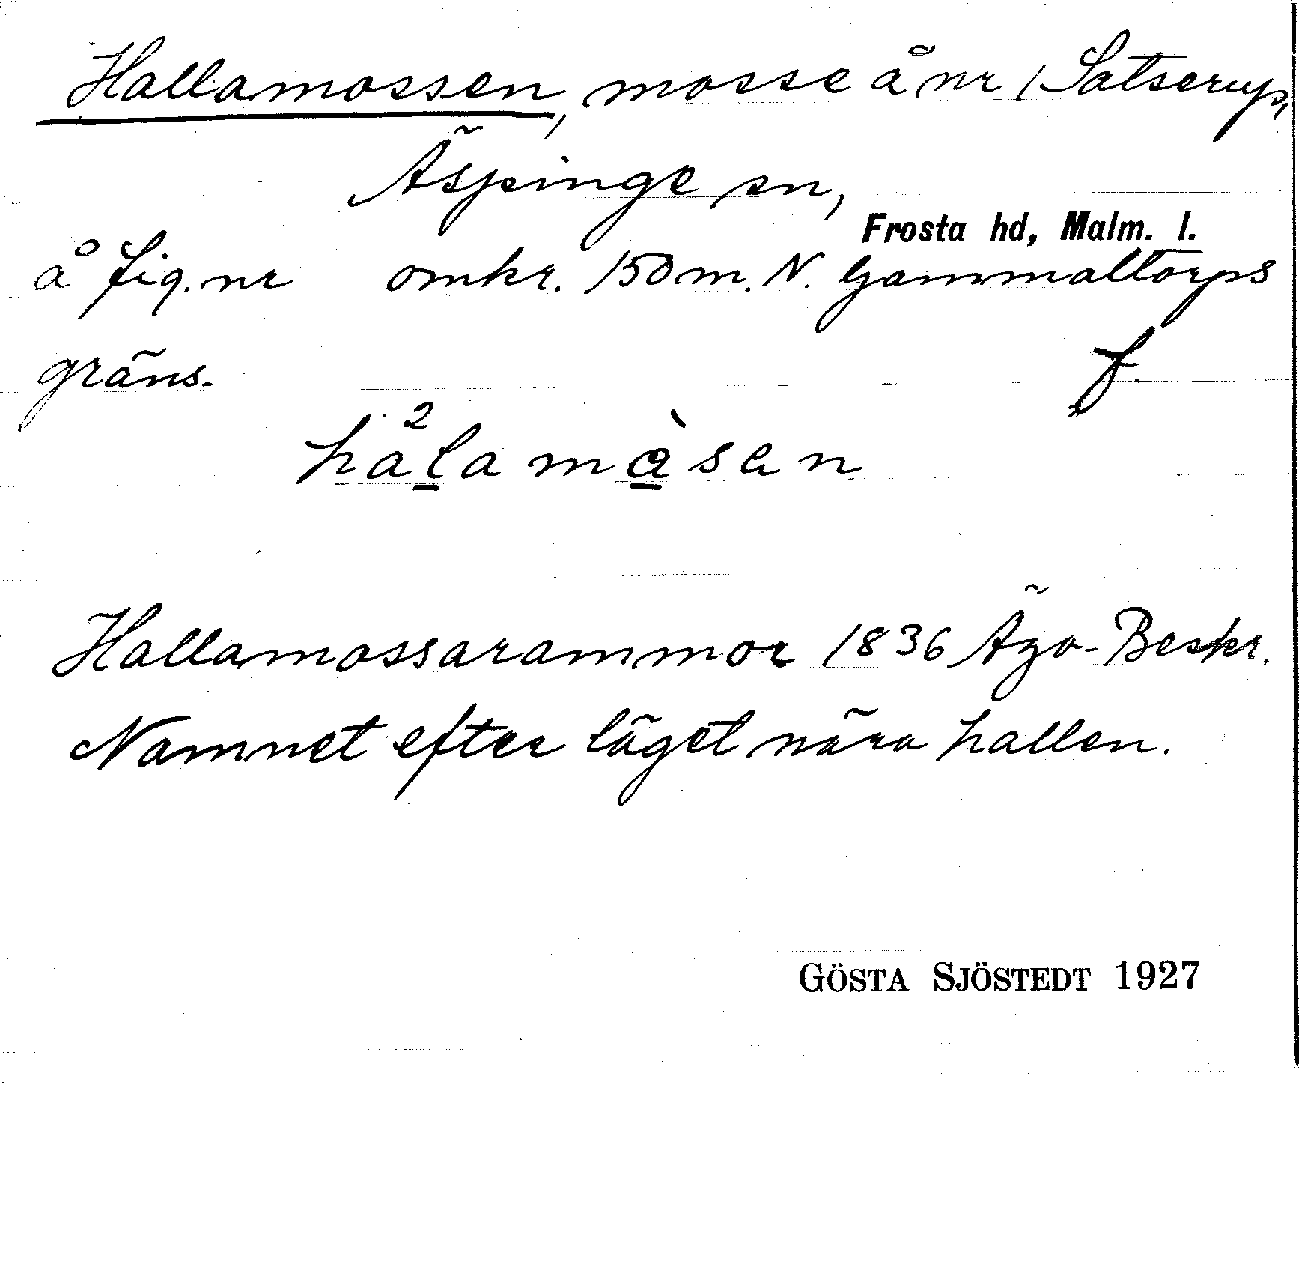 Hallamossen, mosse å nr 1 Satserup,
Äspinge sn,
Frosta hd, Malm. l.
å fig. nr omkr. 150 m. N. Gammaltorps
gräns. f
hå²lamòsen
Hallamossarammor 1836 Ägo-Beskr.
Namnet efter läget nära hallen.
GÖSTA SJÖSTEDT 1927